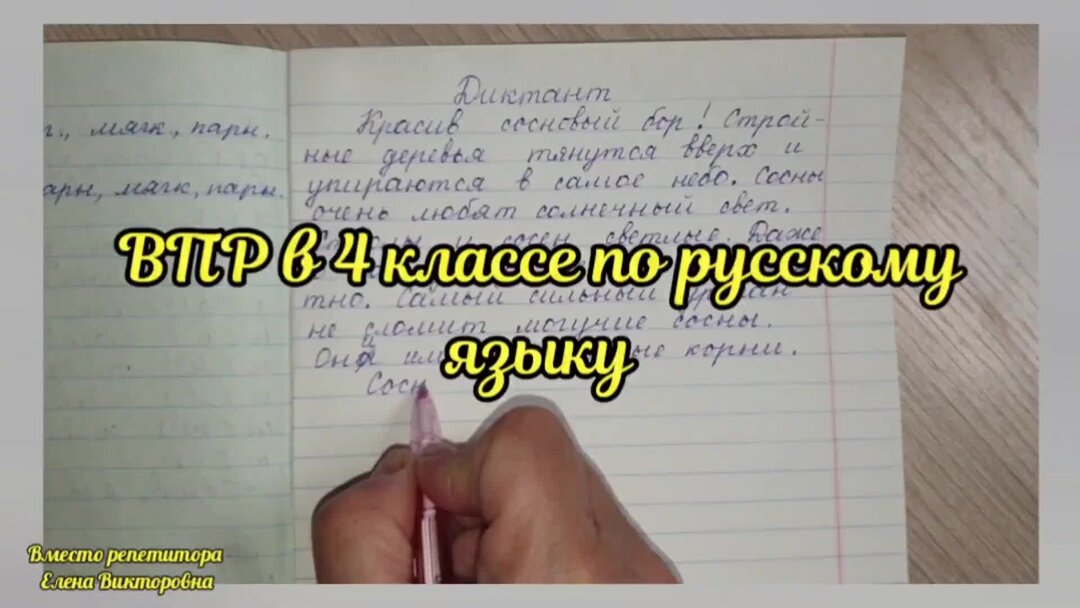 г., мягк., парн.
арн, мягк, парн.
Диктант
Красив сосновый бор! Строй-
ные деревья тянутся вверх и
упираются в самое небо. Сосны
очень любят солнечный свет.
и сосен светлые. Даже
ВПР в 4 классе по русскому
языку
тно. Самый сильный
не сломит могучие сосны.
корни.
Сосн
Вместо репетитора
Елена Викторовна